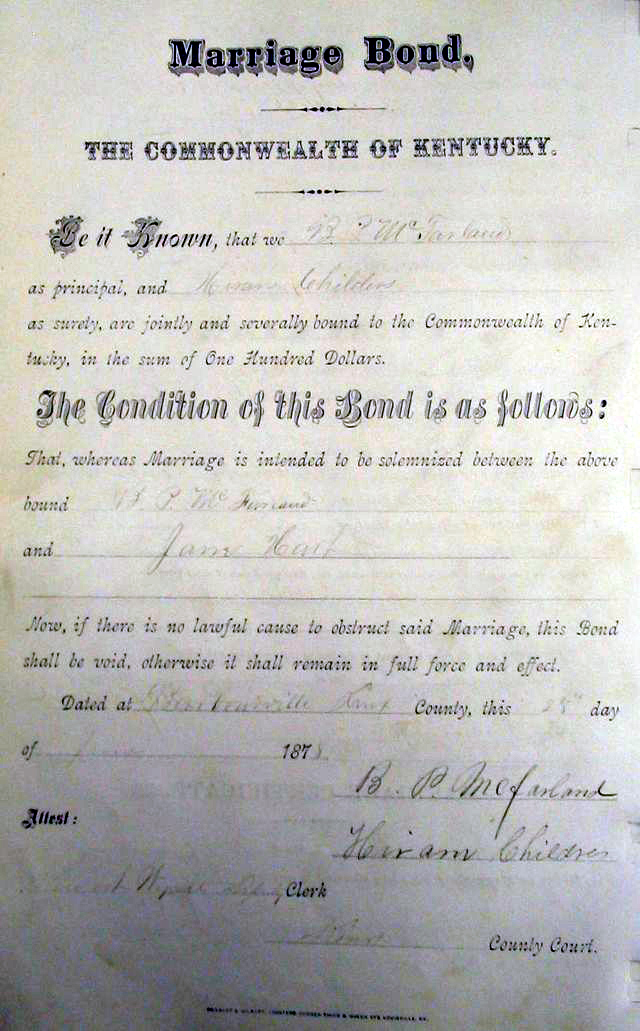 Marriage Bond,
THE COMMONWEALTH OF KENTUCKY.
Be it Known, that we B P McFarland
as principal, and Hiram Childers
as surety, are jointly and severally bound to the Commonwealth of Ken-
tucky, in the sum of One Hundred Dollars.
The Condition of this Bond is as follows:
That, whereas Marriage is intended to be solemnized between the above
bound B. P. McFarland
and Jane
Now, if there is no lawful cause to obstruct said Marriage, this Bond
shall be void, otherwise it shall remain in full force and effect.
Dated at Barbourville Knox County, this 28th day
of 1878
B. P. McFarland
Attest:
Hiram Childres
Clerk
Knox County Court.